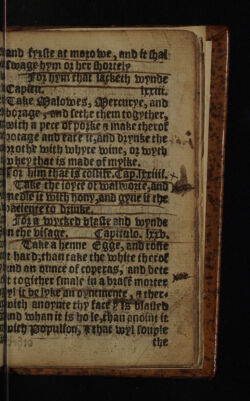 and fyrste at morowe, and it shal
swage hym or her shortely
For hym that lacketh wynde
Capitu. lxxiii.
Take Malowes, Mercurye, and
borage, and sethe them togyther,
with a pece of porke & make therof
potage and eate it, and drynke the
brothe with whyte wine, or wyth
whey that is made of mylke.
For him that is costife. Cap. lxxiiii.
Take the ioyce of walworte, and
medle it with hony, and gyue it the
paciente to drinke.
For a wycked blaste and wynde
in the visage. Capitulo. lxxv.
Take a henne Egge, and roste
it hard, than take the white therof
and an ounce of coperas, and bete
it togither smale in a brase morter
tyl it be lyke an oyntmente, & ther-
with anoynte thy face yt is blasted
and whan it is hole, than anoint it
with Populion, & that wyl souple
the